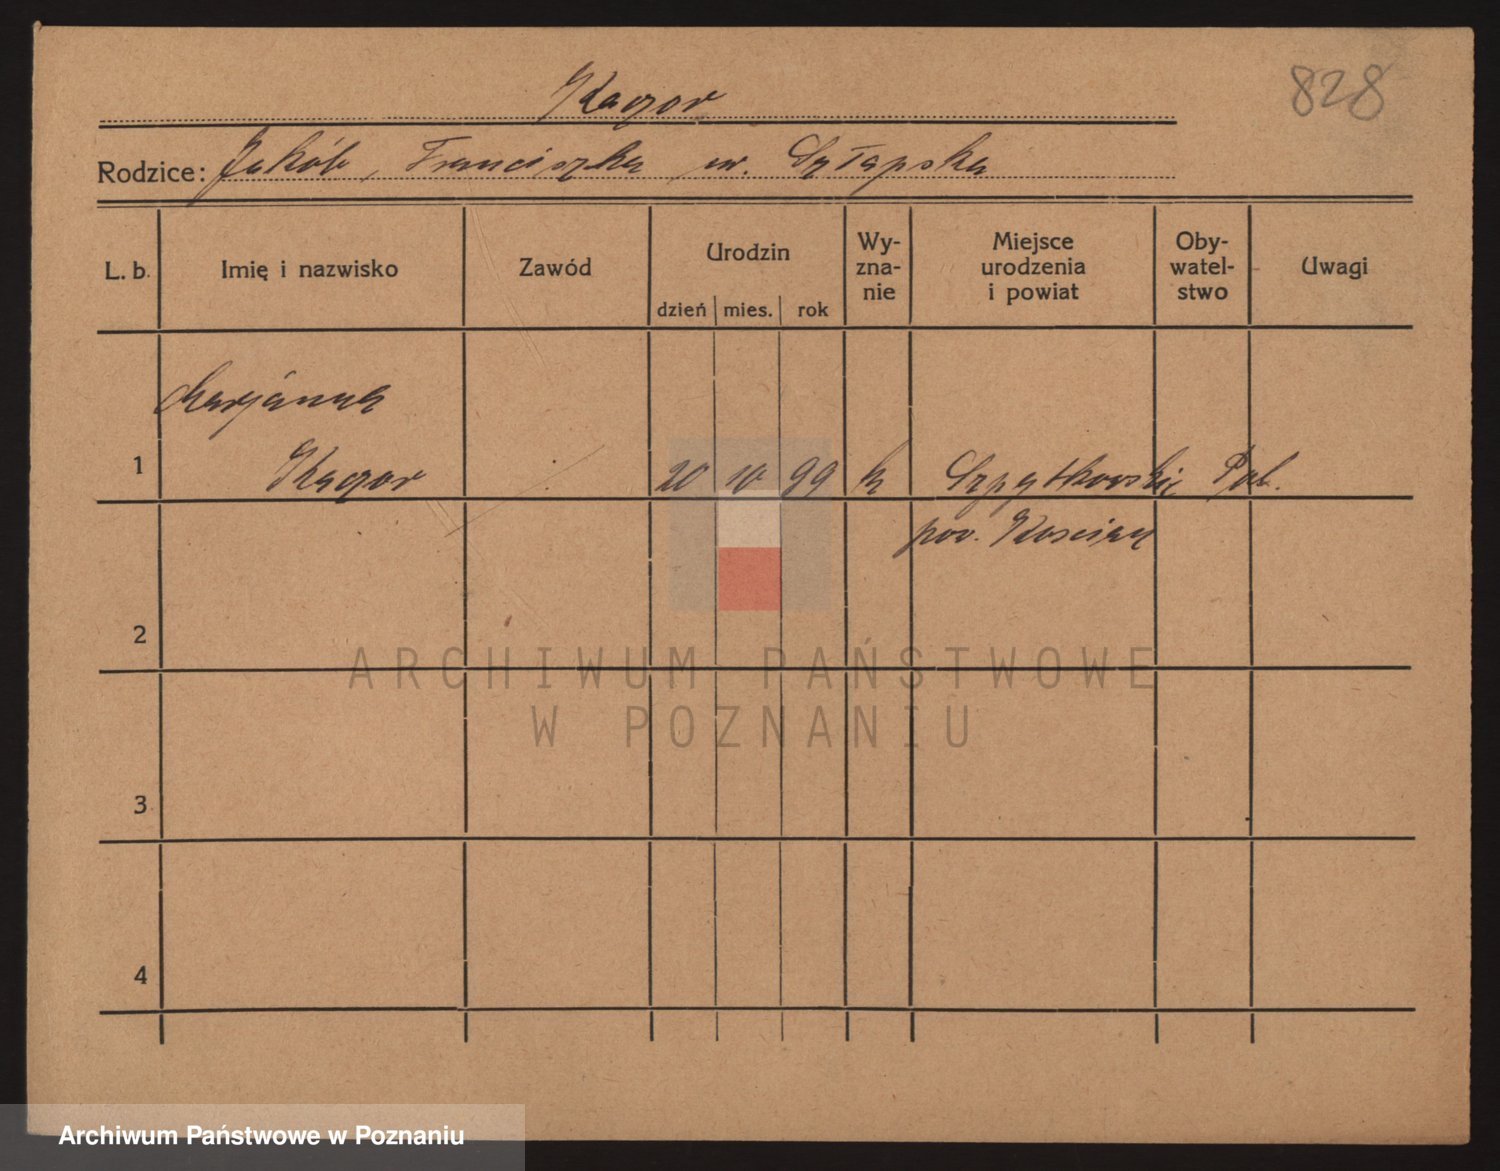 Kaczor
828
Rodzice: Jakób, Franciszka ur. Szłapska
L. b. Imię i nazwisko Zawód Urodzin Wy-zna-nie Miejsce urodzenia i powiat Oby-watel-stwo Uwagi
dzień mies. rok
Marjanna
1 Kaczor 20 10 99 k Pol.
pow. Kościan
2
ARCHIWUM PAŃSTWOWE
W POZNANIU
3
4
Archiwum Państwowe w Poznaniu